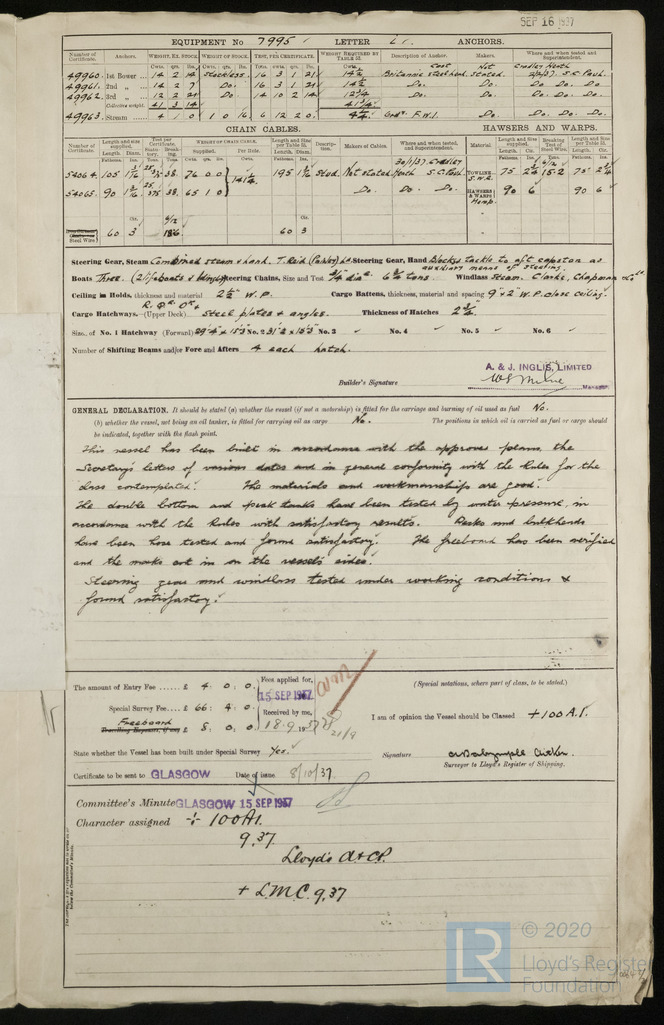 SEP 16 1937
EQUIPMENT No 7995 LETTER ANCHORS.
Number of Certificate. Anchors. WEIGHT, EX. STOCK WEIGHT OF STOCK. TEST, PER CERTIFICATE. WEIGHT REQUIRED BY TABLE 31. Description of Anchor. Makers. Where and when tested and Superintendent.
Cwts. qrs. lbs. Cwts. qrs. lbs. Cwts.
49960. 1st Bower 14 2 14 Stockless. 16 3 1 21 14½ Britannic steel head. Not stated. Cradley Heath 2/2/37. S.C. Paul.
49961. 2nd 14 2 7 Do. 16 3 1 21 14½ Do. Do. Do. Do. Do.
49962. 3rd 12 2 21 Do 14 10 2 14 Do. Do. Do. Do. Do.
Collective weight. 41 3 14 41¾
49963. Stream 4 1 0 1 0 16 6 12 2 0 F.W.I. Do. Do. Do. Do.
CHAIN CABLES. HAWSERS AND WARPS.
Number of Certificate. Length and size supplied. Test per Certificate. WEIGHT OF CHAIN CABLE. Length and Size per Table 31. Description. Makers of Cables. Where and when tested, and Superintendent. Material Length and size supplied. Breaking Test of Steel Wire. Length and Size per Table 31.
54064. 105 38. 76 0 0 195 Stud. Not stated Heath S.C. Paul. TOWLINE S.W.R. 75 2¼ 15.2 75 2¼
54065. 90 38. 65 1 0 Do. Do. Do. HAWSERS & WARPS Hemp. 90 6 90 6
Steel Wire 60 3 18.6 60 3
Steering Gear, Steam Combined steam & hand. T. Reid (Paisley) Ld. Steering Gear, Hand Blocks & tackle to aft capstan as
auxiliary means of steering.
Boats Three. (2 lifeboats & dinghy) Steering Chains, Size and Test ¾ dia. 6¾ tons. Windlass Steam. Clarke, Chapman & Co Ld.
Ceiling in Holds, thickness and material 2½" W.P. Cargo Battens, thickness, material and spacing 9" × 2" W.P. close ceiling.
Cargo Hatchways.—(Upper Deck) Steel plates & angles. Thickness of Hatches 2¾"
Size of No. 1 Hatchway (Forward) No. 2 No. 3 No. 4 No. 5 No. 6
Number of Shifting Beams and/or Fore and Afters 4 each hatch.
A. & J. INGLIS, LIMITED
Builder's Signature Manager.
GENERAL DECLARATION. It should be stated (a) whether the vessel (if not a motorship) is fitted for the carriage and burning of oil used as fuel No.
(b) whether the vessel, not being an oil tanker, is fitted for carrying oil as cargo No. The positions in which oil is carried as fuel or cargo should
be indicated, together with the flash point.
This vessel has been built in accordance with the approved plans, the
Secretary's letters of various dates and in general conformity with the Rules for the
class contemplated. The materials and workmanship are good.
The double bottom and peak tanks have been tested by water pressure, in
accordance with the Rules with satisfactory results. Decks and bulkheads
have been hose tested and found satisfactory. The freeboard has been verified
and the marks cut in on the vessel's sides.
Steering gear and windlass tested under working conditions &
found satisfactory.
The amount of Entry Fee £ 4 : 0 : 0. Fees applied for, 15 SEP 1937
(Special notations, where part of class, to be stated.)
Special Survey Fee £ 66 : 4 : 0. Received by me, 18.9.1937
Freeboard £ 8 : 0 : 0. 21/9
I am of opinion the Vessel should be Classed +100 A.1.
State whether the Vessel has been built under Special Survey Yes.
Signature
Surveyor to Lloyd's Register of Shipping.
Certificate to be sent to GLASGOW Date of issue 8/10/37
Committee's Minute GLASGOW 15 SEP 1937
Character assigned + 100A1.
9.37.
Lloyd's A&CP.
+ LMC 9.37
LR © 2020
Lloyd's Register
Foundation